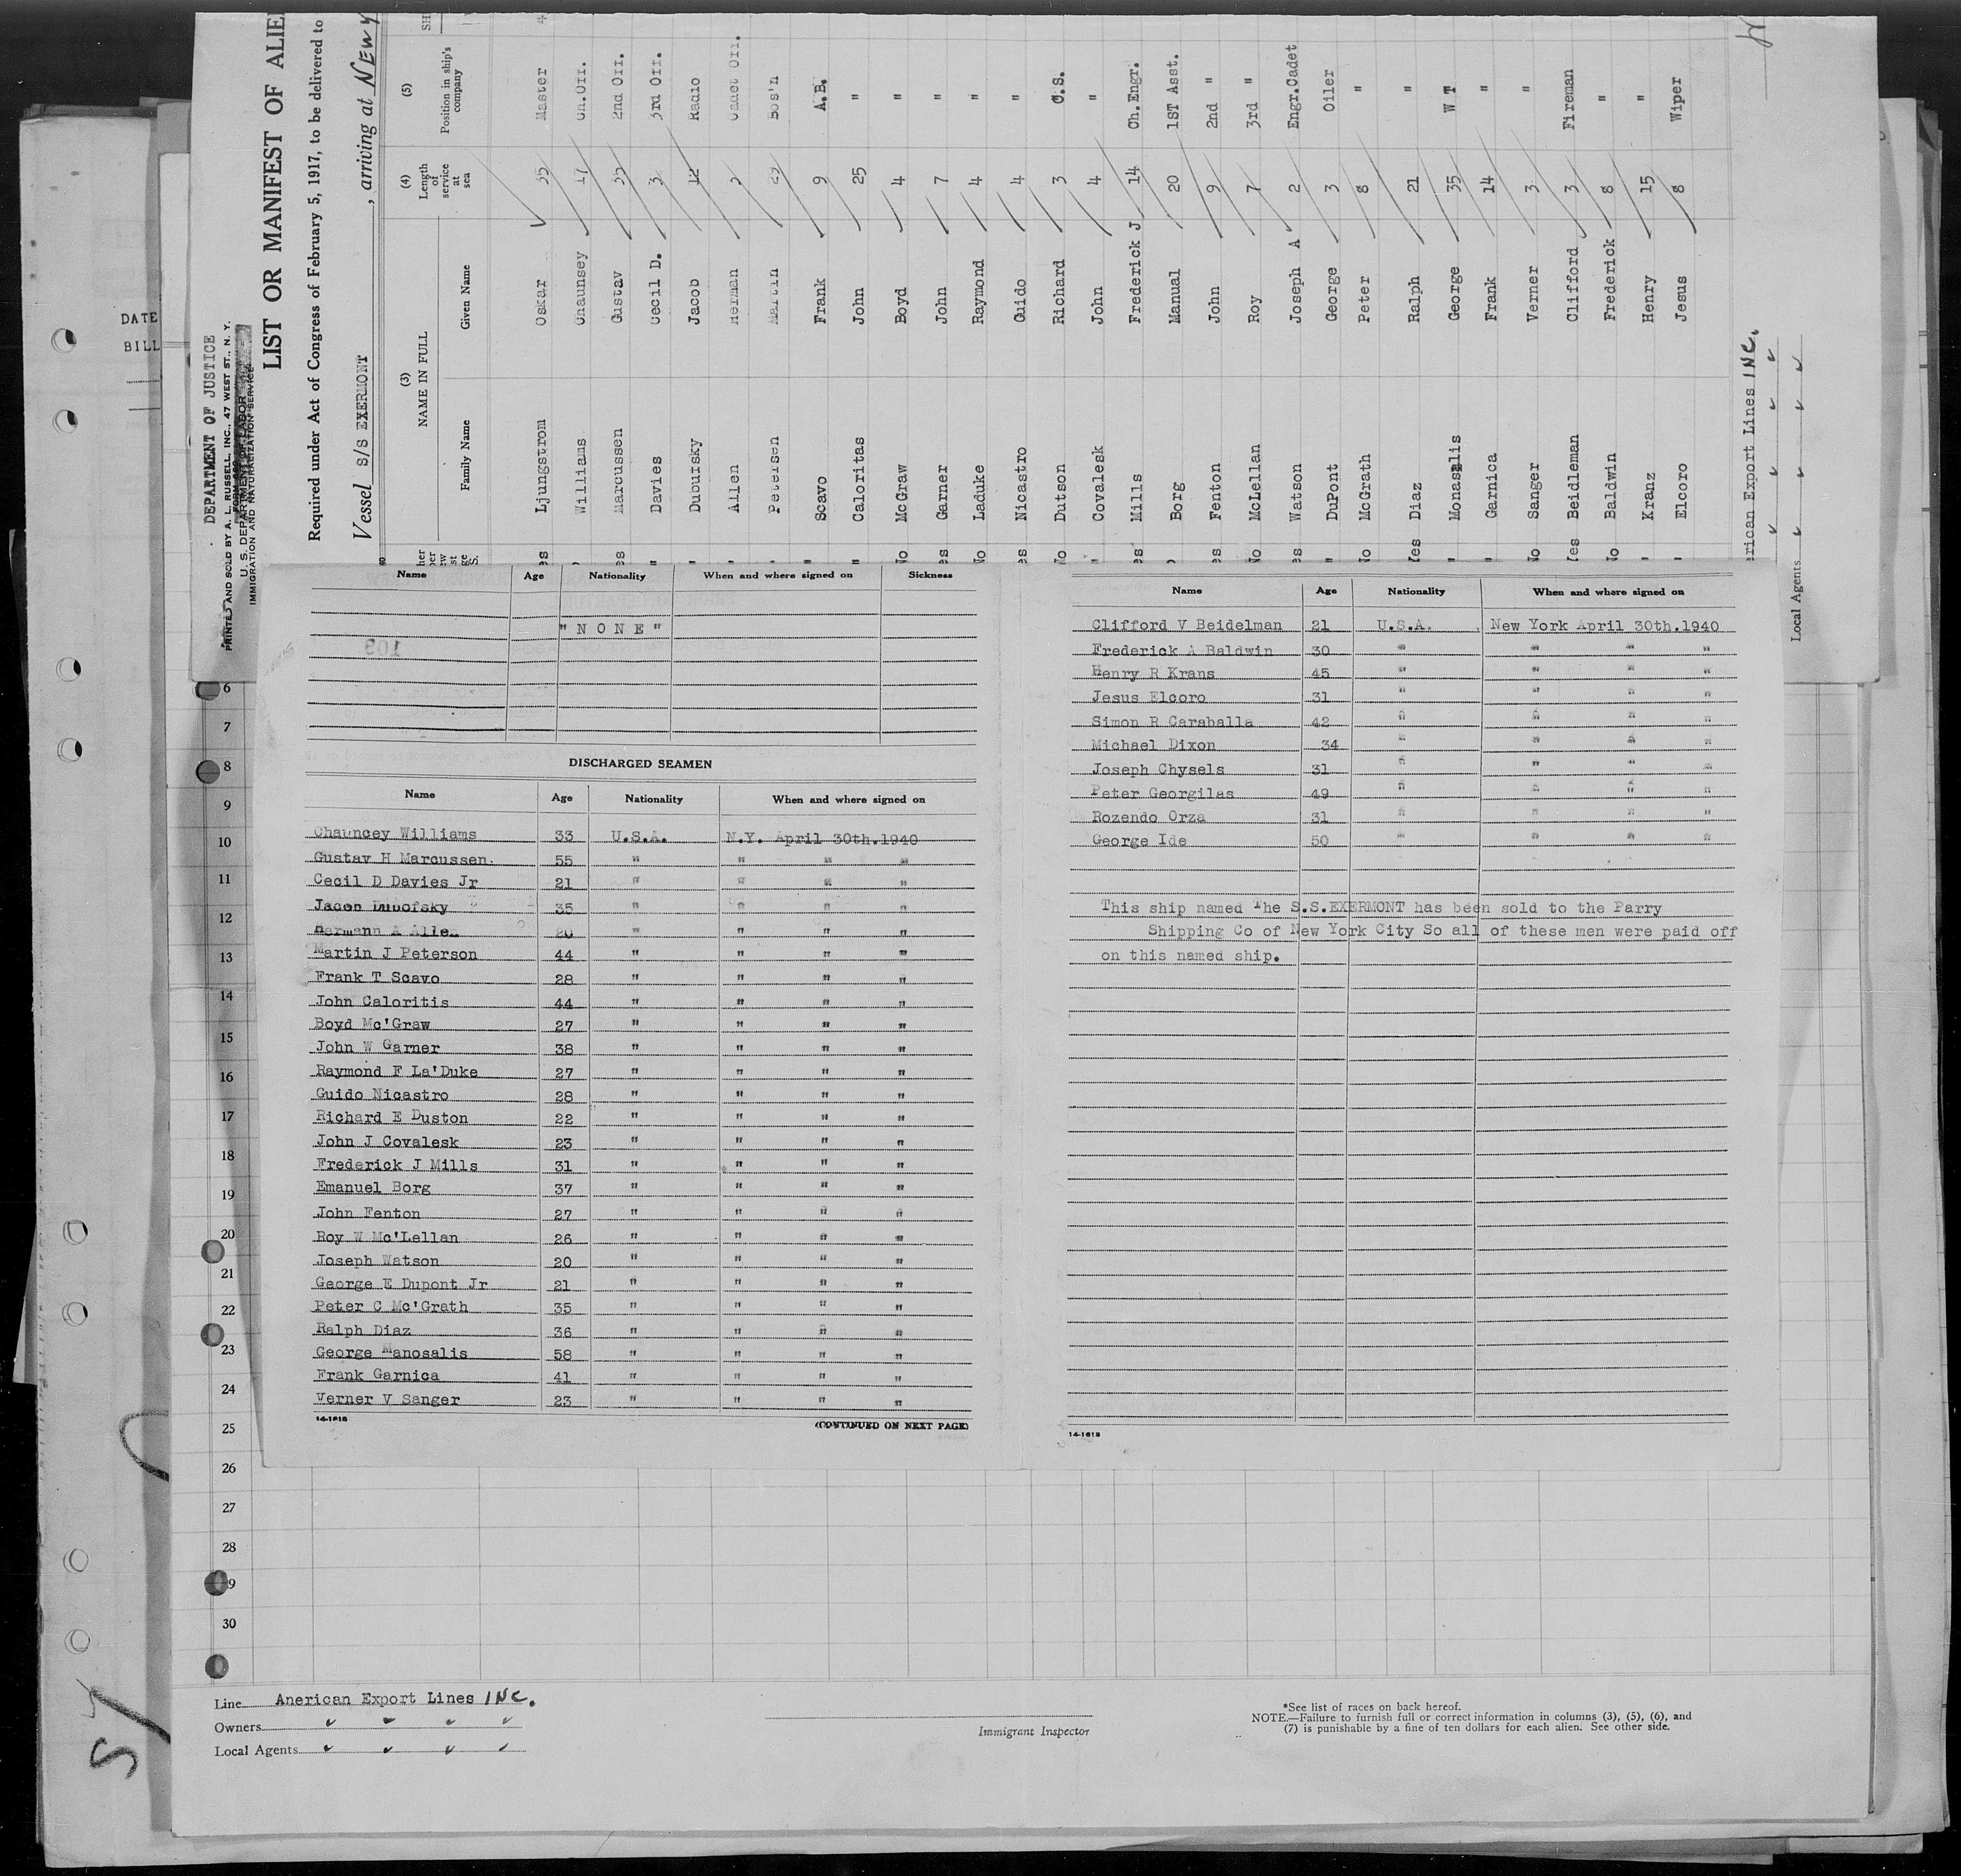 DEPARTMENT OF JUSTICE
PRINTED AND SOLD BY A. L. RUSSELL, INC., 47 WEST ST., N. Y.
U. S. DEPARTMENT OF LABOR
IMMIGRATION AND NATURALIZATION SERVICE
LIST OR MANIFEST OF ALIE
Required under Act of Congress of February 5, 1917, to be delivered to
Vessel S/S EXERMONT, arriving at NEW Y
(3) (4) (5)
NAME IN FULL Length of service at sea Position in ship's company
Family Name Given Name
es Ljungstrom Oskar 35 Master
Williams Chaunsey 17 Ch.Off.
es Marcussen Gustav 35 2nd Off.
" Davies Cecil D. 3 3rd Off.
" Dubufsky Jacob 12 Radio
" Allen Herman Cadet Off.
" Petersen Martin 29 Bos'n
" Scavo Frank 9 A.B.
" Caloritas John 25 "
No McGraw Boyd 4 "
es Garner John 7 "
No Laduke Raymond 4 "
es Nicastro Guido 4 "
No Dutson Richard 3 O.S.
" Covalesk John 4 "
es Mills Frederick J 14 Ch.Engr.
Borg Manual 20 1ST Asst.
es Fenton John 9 2nd "
No McLellan Roy 7 3rd "
es Watson Joseph A 2 Engr.Cadet
" DuPont George 3 Oiler
No McGrath Peter 8 "
Yes Diaz Ralph 21 "
" Monasalis George 35 W T
" Garnica Frank 14 "
No Sanger Verner 3 "
Yes Beidleman Clifford 3 Fireman
No Baldwin Frederick 8 "
" Kranz Henry 15 "
" Elcoro Jesus 8 Wiper
erican Export Lines INC.
Local Agents
DATE
BILL
Name Age Nationality When and where signed on Sickness
"NONE"
103
DISCHARGED SEAMEN
Name Age Nationality When and where signed on
Chauncey Williams 33 U.S.A. N.Y. April 30th.1940
Gustav H Marcussen. 55 " " " "
Cecil D Davies Jr 21 " " " "
Jacob Dubofsky 35 " " " "
Hermann A Allen 20 " " " "
Martin J Peterson 44 " " " "
Frank T Scavo 28 " " " "
John Caloritis 44 " " " "
Boyd Mc'Graw 27 " " " "
John W Garner 38 " " " "
Raymond F La'Duke 27 " " " "
Guido Nicastro 28 " " " "
Richard E Duston 22 " " " "
John J Covalesk 23 " " " "
Frederick J Mills 31 " " " "
Emanuel Borg 37 " " " "
John Fenton 27 " " " "
Roy W Mc'Lellan 26 " " " "
Joseph Watson 20 " " " "
George E Dupont Jr 21 " " " "
Peter C Mc'Grath 35 " " " "
Ralph Diaz 36 " " " "
George Manosalis 58 " " " "
Frank Garnica 41 " " " "
Verner V Sanger 23 " " " "
14-1618 (CONTINUED ON NEXT PAGE)
Name Age Nationality When and where signed on
Clifford V Beidelman 21 U.S.A. New York April 30th.1940
Frederick A Baldwin 30 " " " "
Henry R Krans 45 " " " "
Jesus Elcoro 31 " " " "
Simon R Caraballa 42 " " " "
Michael Dixon 34 " " " "
Joseph Chysels 31 " " " "
Peter Georgilas 49 " " " "
Rozendo Orza 31 " " " "
George Ide 50 " " " "
This ship named The S.S.EXERMONT has been sold to the Parry
Shipping Co of New York City So all of these men were paid off
on this named ship.
14-1618
6
7
8
9
10
11
12
13
14
15
16
17
18
19
20
21
22
23
24
25
26
27
28
9
30
Line Anerican Export Lines INC.
Owners
Local Agents
Immigrant Inspector
*See list of races on back hereof.
NOTE.—Failure to furnish full or correct information in columns (3), (5), (6), and
(7) is punishable by a fine of ten dollars for each alien. See other side.